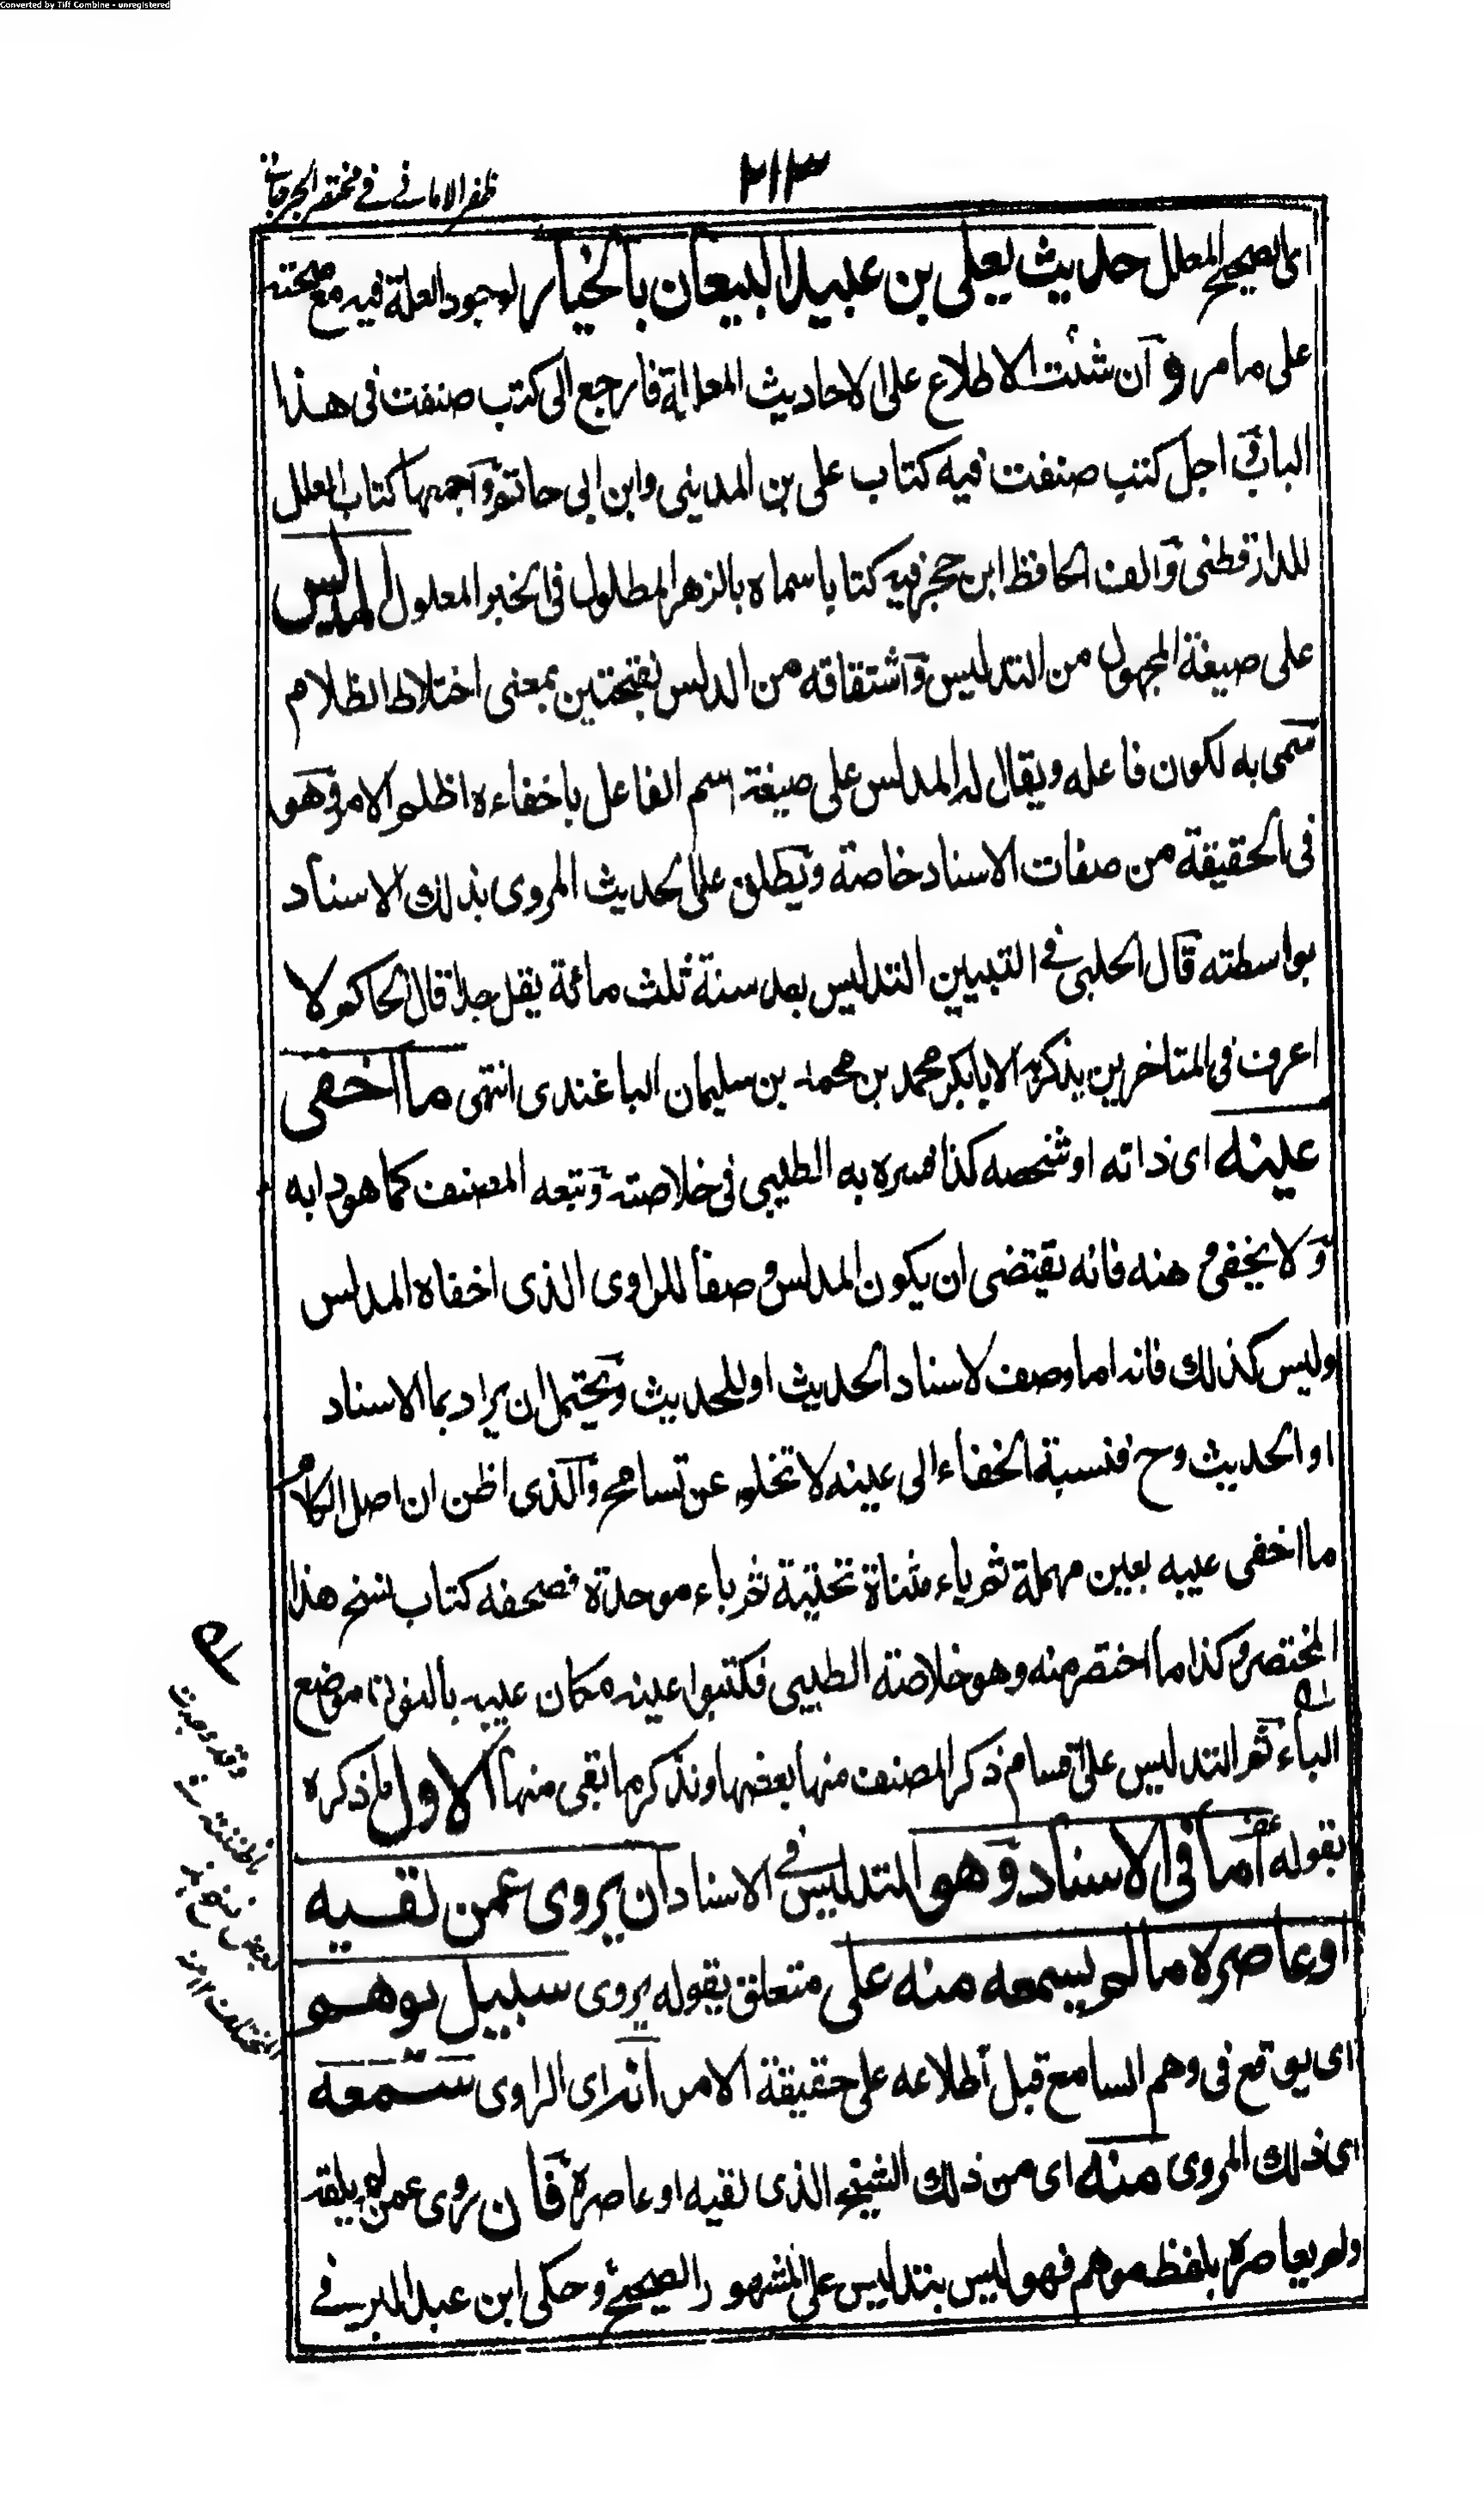 Converted by Tiff Combine - unregistered
٢١٣
ظفر الامانى فى مختصر الجرجانى
اى الصحيح المعلل حديث يعلى بن عبيد البيعان بالخيار لوجود العلة فيه مع صحته
على ما مر وان شئت الاطلاع على الاحاديث المعللة فارجع الى كتب صنفت فى هذا
الباب واجل كتب صنفت فيه كتاب على بن المدينى وابن ابى حاتم واجمعها كتاب العلل
للدارقطنى والف الحافظ ابن حجر فيه كتابا سماه بالزهر المطلول فى الخبر المعلول المدلس
على صيغة المجهول من التدليس واشتقاقه من الدلس بفتحتين بمعنى اختلاط الظلام
سمى به لكون فاعله ويقال له المدلس على صيغة اسم الفاعل باخفاءه اظلم الامر وهو
فى الحقيقة من صفات الاسناد خاصة ويطلق على الحديث المروى بذلك الاسناد
بواسطته قال الحلبى فى التبيين التدليس بعد سنة ثلث مائة يقل جدا قال الحاكم لا
اعرف فى المتاخرين يذكره الا ابا بكر محمد بن محمد بن سليمان الباغندى انتهى ما اخفى
عينه اى ذاته او شخصه كذا فسره به الطيبى فى خلاصته وتبعه المصنف كما هو دابه
ولا يخفى وهنه فانه يقتضى ان يكون المدلس وصفا للراوى الذى اخفاه المدلس
وليس كذلك فانه اما وصف لاسناد الحديث او للحديث ويحتمل ان يراد بما الاسناد
او الحديث وح فنسبة الخفاء الى عينه لا تخلو عن تسامح والذى اظن ان اصل الكلام
ما اخفى عيبه بعين مهملة ثم ياء مثناة تحتية ثم باء موحدة فصحفه كتاب نسخ هذا
المختصر وكذا ما اختصر منه وهو خلاصة الطيبى فكتبوا عينه مكان عيبه بالنون موضع
الباء ثم التدليس على اقسام ذكر المصنف منها بعضها ونذكر ما بقى منها الاول ما ذكره
بقوله اما فى الاسناد وهو التدليس فى الاسناد ان يروى عمن لقيه
او عاصره ما لم يسمعه منه على متعلق بقوله يروى سبيل يوهم
اى يوقع فى وهم السامع قبل اطلاعه على حقيقة الامر انه اى الراوى سمعه
اى ذلك المروى منه اى من ذلك الشيخ الذى لقيه او عاصره فان روى عمن لم يلقه
ولم يعاصره بلفظ موهم فهو ليس بتدليس على المشهور الصحيح وحكى ابن عبد البر فى